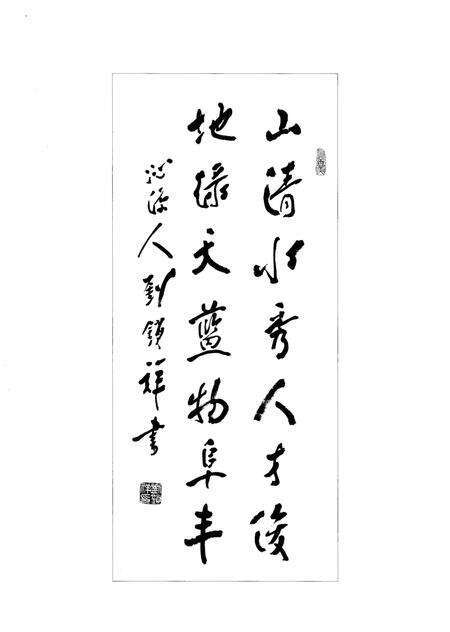 山清水秀人才俊
地绿天蓝物阜丰
沁源人刘锁祥书